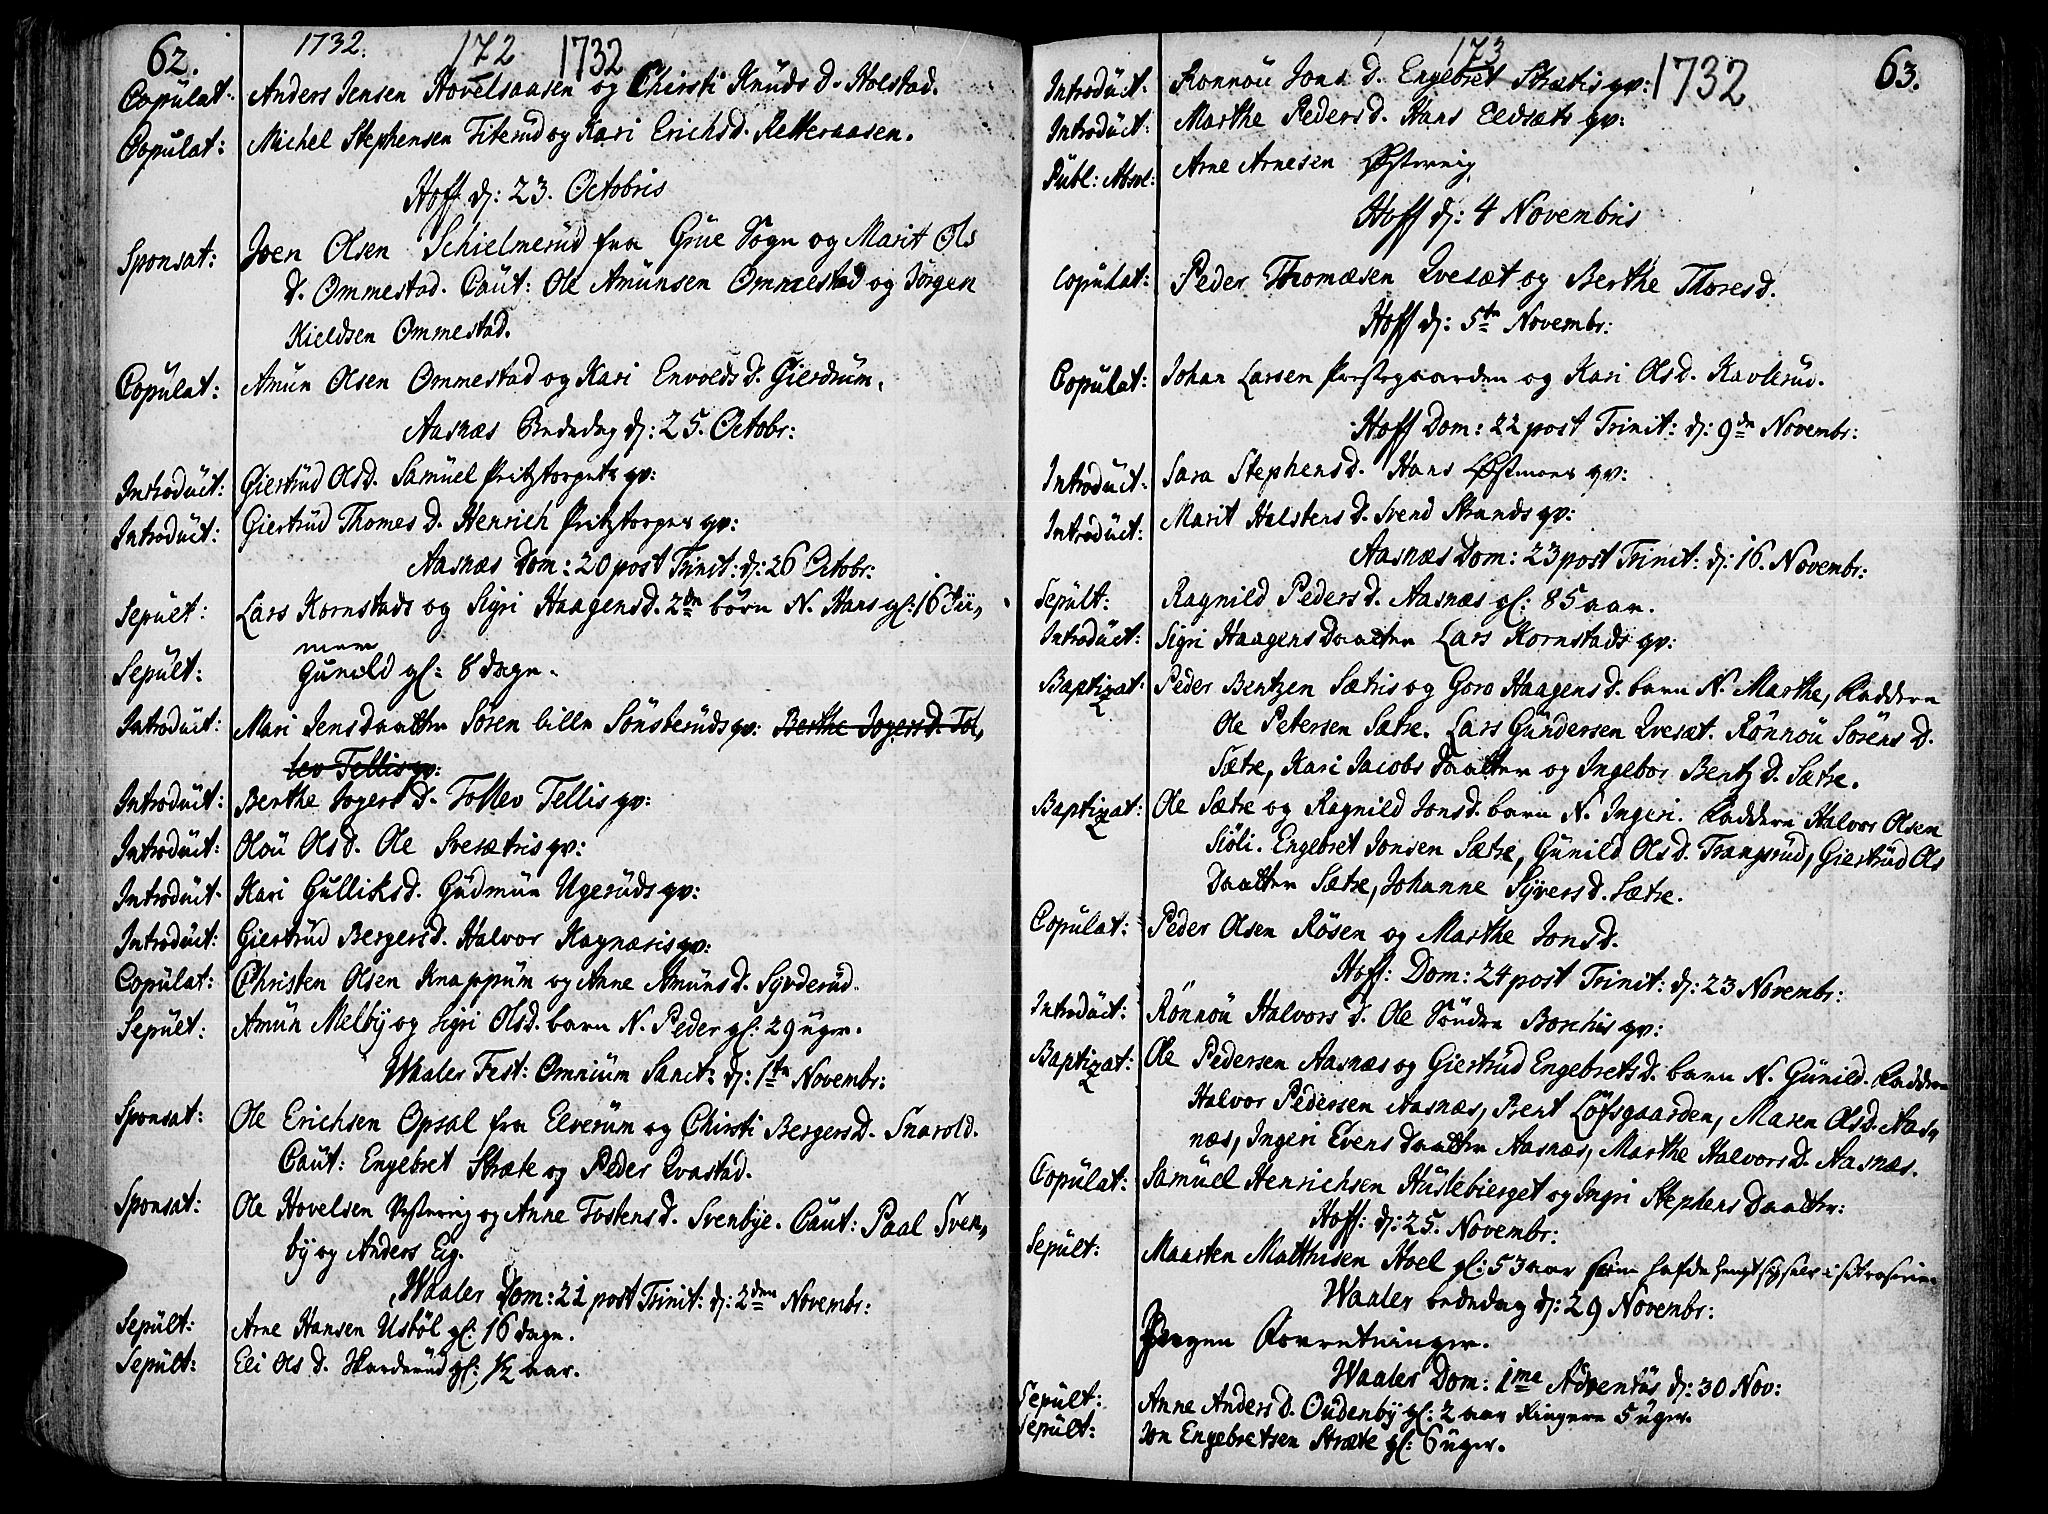 62. 1732. 172 1732
Copulat: Anders Jensen Hovelsaasen og Chirsti Knüds D. Holstad.
Copulat: Michel Stephensen Titerud og Kari Erichsd. Ketteraasen.
Hoff d: 23. Octobris
Sponsat: Joen Olsen Schielmerüd fra Grüe Sogn og Marit Ols
d. Ommestad. Caut: Ole Amünsen Ommestad og Jörgen
Kieldsen Ommestad.
Copulat: Amün Olsen Ommestad og Kari Envolds d. Gierdrüm.
Aasnæs Bededag d: 25. Octobr:
Introdüct: Giertrüd Olsd. Samüel Pritztorpets qv:
Introdüct: Giertrüd Thomes d. Henrich Pritztorpes qv:
Aasnæs Dom: 20 post Trinit: d: 26 Octobr:
Sepült: Lars Kornstads og Sigri Haagensd. 2de börn N. Hans gl: 16 Tii,
mer
Sepült: Gunild gl: 8 dage.
Introdüct: Mari Jensdaatter Sören lille Sönsterüds qv: Berthe Jogersd. Tol,
lev Tellis qv:
Introdüct: Berthe Jogers d. Tollev Tellis qv:
Introdüct: Oloü Olsd. Ole Svesætris qv:
Introdüct: Kari Gulliksd. Güdmün Ugerüds qv:
Introdüct: Giertrüd Bergersd. Halvor Kagnæsis qv:
Copülat: Christen Olsen Knappüm og Anne Amünsd. Syvderüd.
Sepült: Amün Melby og Sigri Olsd. barn N. Peder gl: 29 uger.
Waaler Fest: Omniüm Sanct: d: 1te Novembr:
Sponsat: Ole Erichsen Opsal fra Elverüm og Chirsti Bergersd. Snarold.
Caut: Engebret Stræte og Peder Qvastad.
Sponsat: Ole Hovelsen Østernig og Anne Tostensd. Svenbye. Caut: Paal Sven,
by og Anders Eg.
Waaler Dom: 21 post Trinit: d: 2den Novembr:
Sepült: Arne Hansen Usböl gl: 16 dage.
Sepült: Eli Ols D. Skarderüd gl: 1/2 aar.
173 1732 63.
Introdüct: Ronnoü Jons d. Engebret Strætis qv:
Introdüct: Marthe Pedersd. Hans Eedsæts qv:
Publ: Absol: Arne Arnesen Østernig
Hoff d: 4 Novembris
Copulat: Peder Thomæsen Qvesæt og Berthe Thoresd.
Hoff d: 5te Novembr:
Copulat: Johan Larsen Prestegaarden og Kari Olsd. Kavlerüd.
Hoff Dom: 22 post Trinit: d: 9de Novembr:
Introdüct: Sara Stephensd. Hans Østmoes qv:
Introdüct: Marit Halstens d. Svend Strands qv:
Aasnæs Dom: 23 post Trinit: d: 16. Novembr:
Sepült: Ragnild Pedersd. Aasnæs gl: 85 aar.
Introdüct: Sigri Haagens Daatter Lars Kornstads qv:
Baptizat: Peder Bentzen Sætris og Goro Haagensd. barn N. Marthe, Faddere
Ole Petersen Sætre. Lars Gündersen Qvesæt. Rönnoü Sörens d.
Sætre, Kari Jacobs Daatter og Ingebor Bentz d. Sætre.
Baptizat: Ole Sætre og Ragnild Jonsd. barn N. Ingeri. Faddere Halvor Olsen
Siöli. Engebret Jonsen Sætre, Günild Olsd. Trangsrud, Giertrüd Ols
Daatter Sætre, Johanne Syversd. Sætre.
Copulat: Peder Olsen Rösen og Marthe Jonsd.
Hoff: Dom: 24 post Trinit: d: 23 Novembr:
Introdüct: Rönnoü Halvors d. Ole Söndre Borchis qv:
Baptizat: Ole Pedersen Aasnæs og Giertrüd Engebretsd. barn N. Günild. Faddere
Halvor Pedersen Aasnæs, Bent Löfsgaarden, Maren Olsd. Aas,
næs, Ingeri Evens Daatter Aasnæs, Marthe Halvorsd. Aasnæs.
Copulat: Samuel Henrichsen Hüslebierget og Ingri Stephens Daatter:
Hoff: d: 25. Novembr:
Sepült: Maarten Matthisen Hoel gl: 53 aar som hafde hengt sig selv i
Waaler bededag d: 29 Novembr:
Ingen Forretninger.
Waaler Dom: 1me Adventüs d: 30 Nov:
Sepült: Anne Andersd. Oudenby gl: 2 aar Ringere 5 uger.
Sepült: Jon Engebretsen Stræte gl: 6 uger.